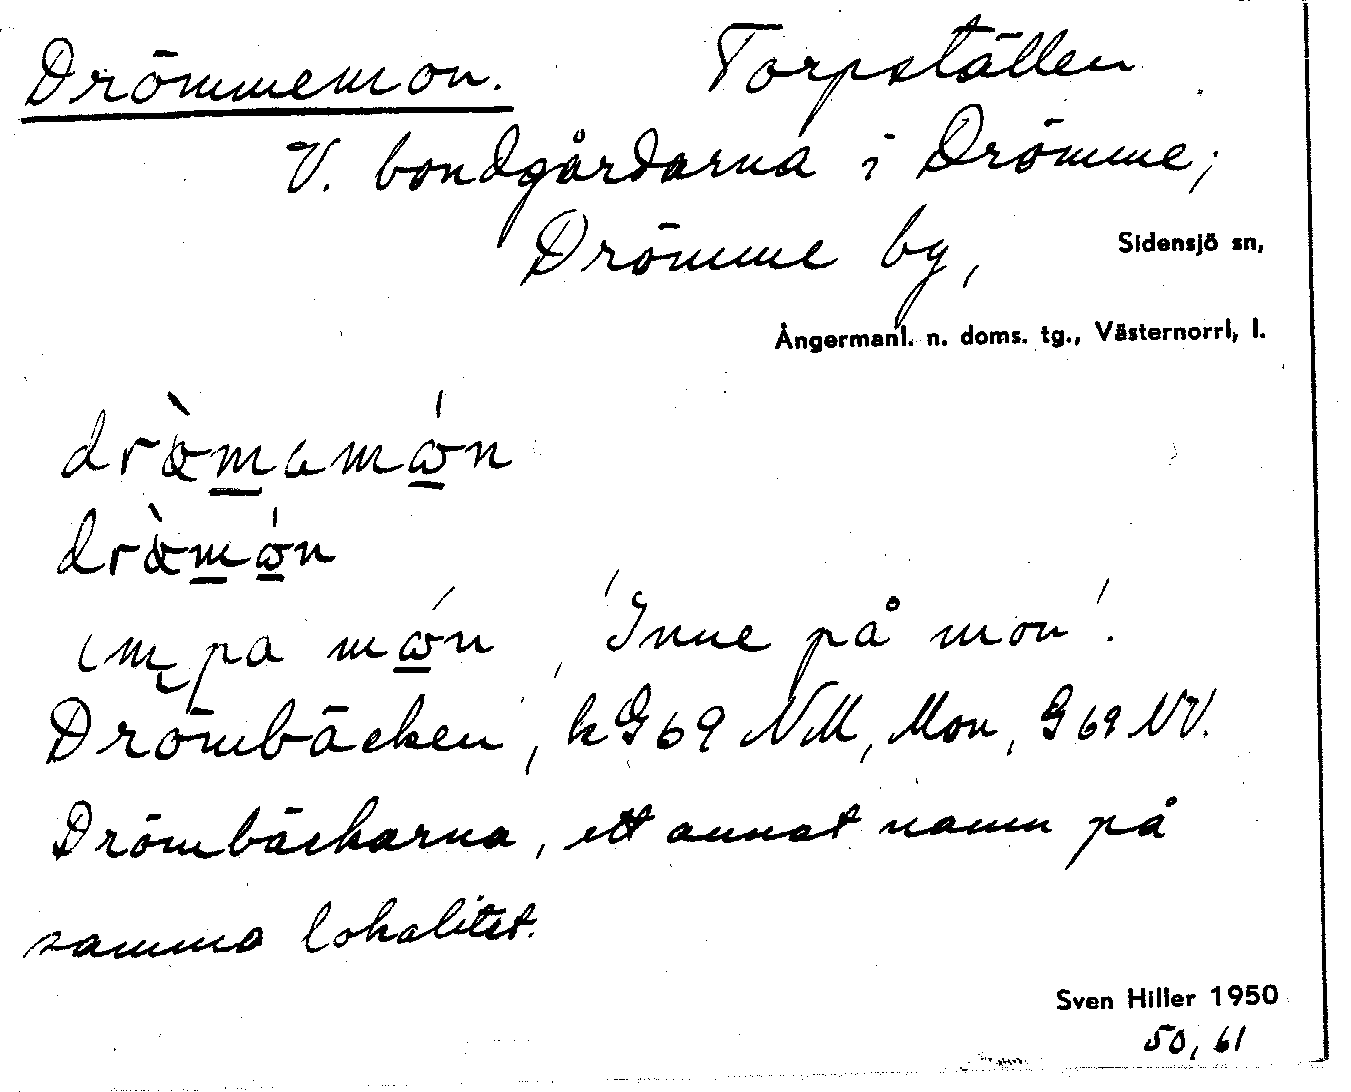 Drömmemon. Torpställen
V. bondgårdarna i Drömme,
Drömme by, Sidensjö sn,
Ångermanl. n. doms. tg., Västernorrl, l.
pa 'Inne på mon'.
Drömbäcken, kG69 NM, Mon, G69 NV.
Drömbäckarna, ett annat namn på
samma lokalitet.
Sven Hiller 1950
50, 61